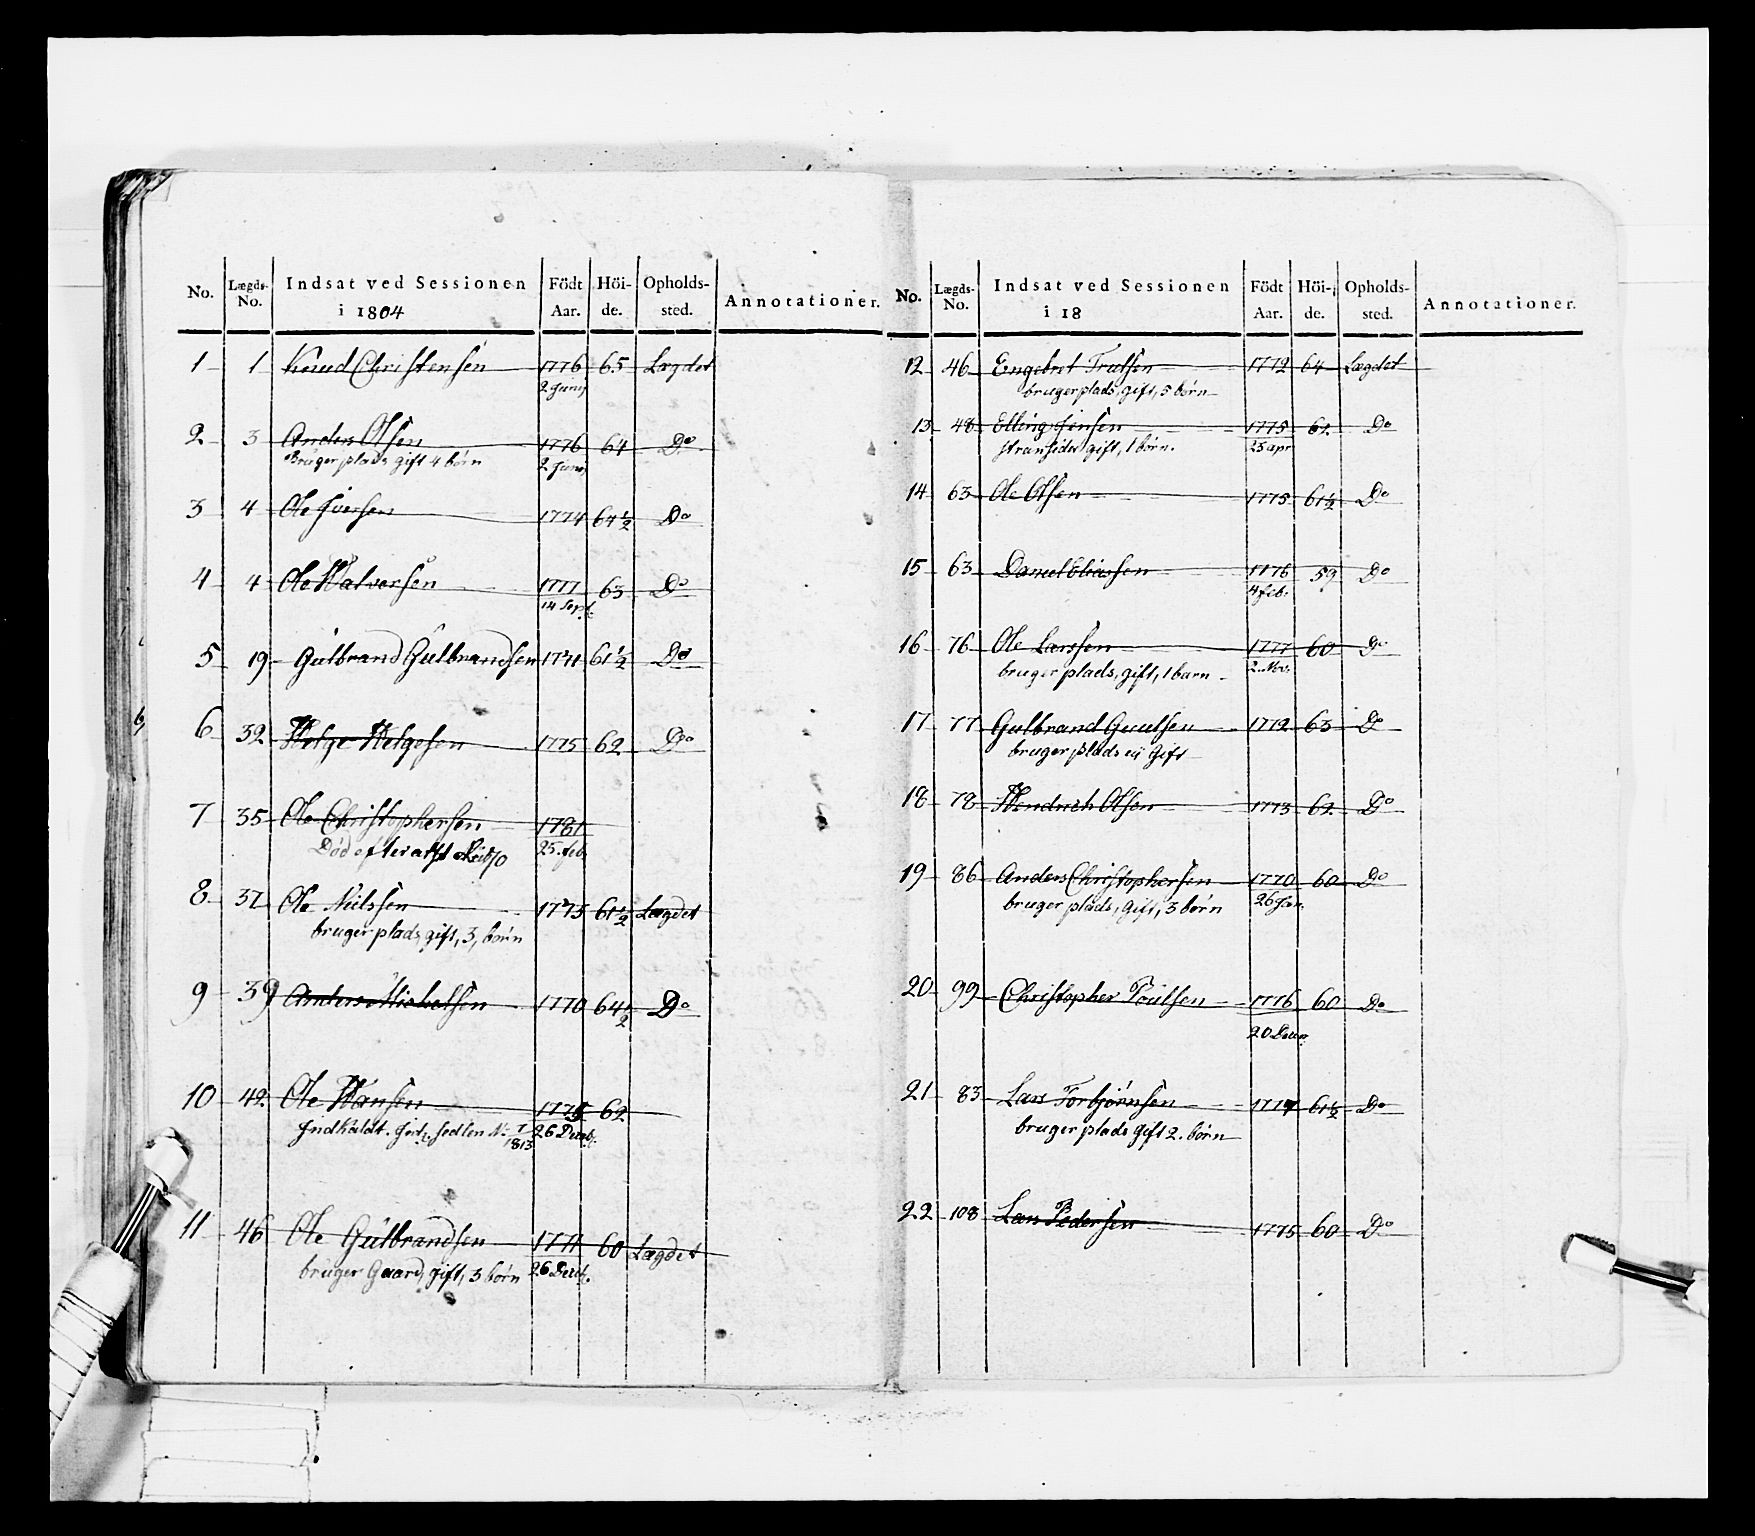 No. Lægds-No. Indsat ved Sessionen i 1804 Födt Aar. Höi-de. Opholds-sted. Annotationer.
1 1 Knud Christensen 1776 65 Lægdet
2 Junij
2 3 Anders Olsen 1776 64 Do
Bruger plads gift 4 børn 2 Junij
3 4 Ole Iversen 1774 64½ Do
4 4 Ole Halvorsen 1777 63 Do
14 Sept.
5 19 Gulbrand Gulbrandsen 1771 61½ Do
6 32 Helge Helgesen 1775 62 Do
7 35 Ole Christophersen 1781
Død efter att 25. feb.
8 37 Ole Nielssen 1775 61½ Lægdet
bruger plads, gift, 3, børn
9 39 Anders Michelsen 1770 64½ Do
10 42 Ole Hansen 1775 62
Indkaldt. sedlen No 1/1813 26 Decemb.
11 46 Ole Gulbrandsen 1771 60 Lægdet
bruger Gaard, gift, 3 børn 26 Decb.
No. Lægds-No. Indsat ved Sessionen i 18 Födt Aar. Höi-de. Opholds-sted. Annotationer.
12 46 Engebret Trulsen 1772 64 Lægdet
bruger plads, gift, 5 børn
13 48 Elling Jensen 1775 62 Do
Stransider gift, 1 børn. 25 apr
14 63 Ole Olsen 1775 61½ Do
15 63 Daniel Eliassen 1776 59 Do
4 feb.
16 76 Ole Larssen 1777 60 Do
bruger plads, gift, 1 barn 2. Nov.
17 77 Gulbrand Guulsen 1772 63 Do
bruger plads, Gift
18 78 Hendrich Olsen 1773 62 Do
19 86 Anders Christophersen 1770 60 Do
bruger plads, Gift, 3 børn 26 Jan.
20 99 Christopher Poulsen 1776 60 Do
20 Decem.
21 83 Lars Torbjørnsen 1777 61½ Do
bruger plads Gift 2. børn
22 108 Lars Pedersen 1775 60 Do